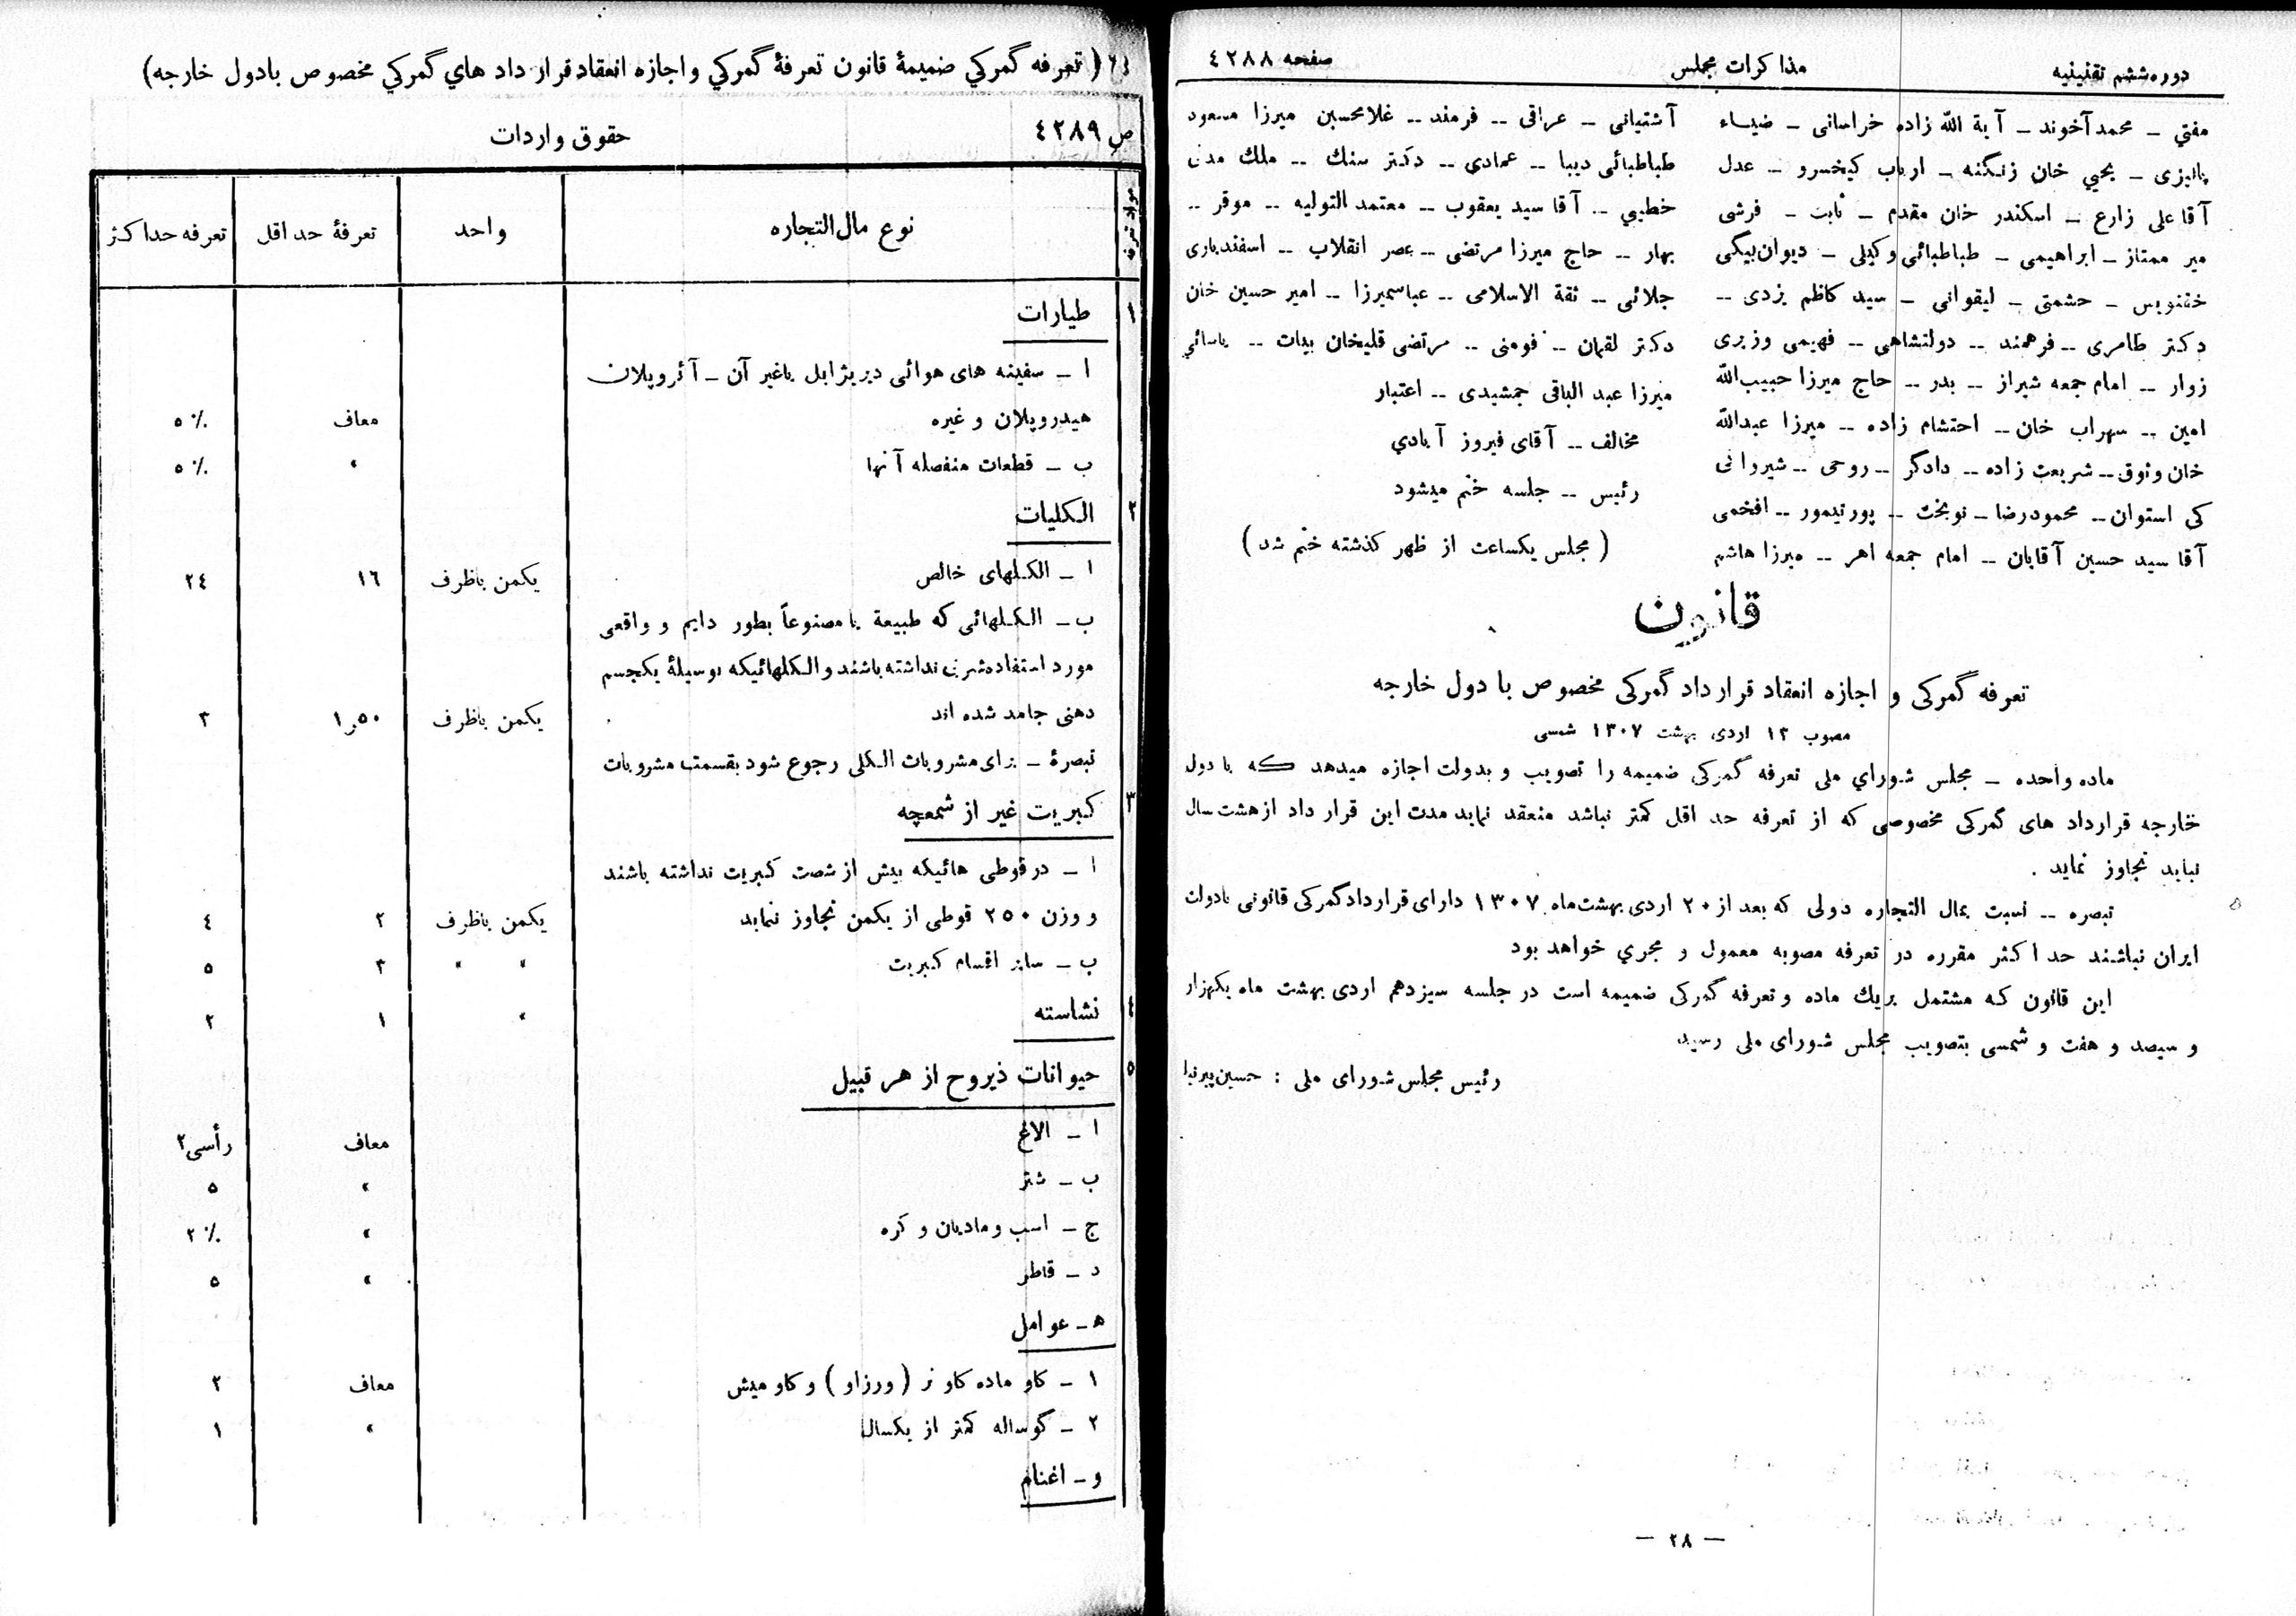 دوره ششم تقنینیه
مذاکرات مجلس
صفحه ٤٢٨٨
مفتي ـ محمد آخوند ـ آیة الله زاده خراسانی ـ ضیاء
پالیزی ـ یحیي خان زنگنه ـ ارباب کیخسرو ـ عدل
آقا علی زارع ـ اسکندر خان مقدم ـ ثابت ـ فرشی
میر ممتاز ـ ابراهیمی ـ طباطبائی وکیلی ـ دیوان بیگی
خفنویس ـ حشمتی ـ لیقوانی ـ سید کاظم یزدی ــ
دکتر طاهری ــ فرهمند ــ دولتشاهی ــ فهیمی وزیری
زوار ــ امام جمعه شیراز ــ بدر ــ حاج میرزا حبیب‌الله
امین ــ سهراب خان ــ احتشام زاده ــ میرزا عبدالله
خان وثوق ــ شریعت زاده ــ دادگر ــ روحی ــ شیروانی
کی استوان ــ محمود رضا ــ نوبخت ــ پور تیمور ــ افخمی
آقا سید حسین آقایان ــ امام جمعه اهر ــ میرزا هاشم
آشتیانی ــ عراقی ــ فرمند ــ غلامحسین میرزا مسعود
طباطبائی دیبا ــ عمادي ــ دکتر سنك ــ ملك مدنی
خطیبي ــ آقا سید یعقوب ــ معتمد التولیه ــ موقر ــ
بهار ــ حاج میرزا مرتضی ــ عصر انقلاب ــ اسفندیاری
جلائی ــ ثقة الاسلامی ــ عباسمیرزا ــ امیر حسین خان
دکتر لقمان ــ فومنی ــ مرتضی قلیخان بیات ــ یاسائي
میرزا عبد الباقی جمشیدی ــ اعتبار
مخالف ــ آقای فیروز آبادي
رئیس ــ جلسه ختم میشود
( مجلس یکساعت از ظهر گذشته ختم شد )
قانون
تعرفه گمرکی و اجازه انعقاد قرارداد گمرکی مخصوص با دول خارجه
مصوب ١٣ اردی بهشت ١٣٠٧ شمسی
ماده واحده ـ مجلس شورای ملی تعرفه گمرکی ضمیمه را تصویب و بدولت اجازه میدهد که با دول
خارجه قرارداد های گمرکی مخصوصی که از تعرفه حد اقل کمتر نباشد منعقد نماید مدت این قرار داد از هشت سال
نباید تجاوز نماید .
تبصره ــ نسبت بمال التجاره دولی که بعد از ٢٠ اردی بهشت‌ماه ١٣٠٧ دارای قرارداد گمرکی قانونی با دولت
ایران نباشند حد اکثر مقرره در تعرفه مصوبه معمول و مجري خواهد بود
این قانون که مشتمل بریك ماده و تعرفه گمرکی ضمیمه است در جلسه سیزدهم اردی بهشت ماه یکهزار
و سیصد و هفت و شمسی بتصویب مجلس شورای ملی رسید
رئیس مجلس شورای ملی : حسین پیرنیا
— ٢٨ —
( تعرفه گمرکي ضمیمهٔ قانون تعرفهٔ گمرکي و اجازه انعقاد قرار داد هاي گمرکي مخصوص با دول خارجه)
ص ٤٢٨٩
حقوق واردات
مواد تعرفه
نوع مال‌التجاره
واحد
تعرفهٔ حد اقل
تعرفه حد اکثر
١
طیارات
ا ـ سفینه های هوائی دیریژابل یا غیر آن ـ آئروپلان
هیدروپلان و غیره معاف ٥٪
ب ـ قطعات منفصله آنها « ٥٪
٢
الکلیات
ا ـ الکلهای خالص یکمن باظرف ١٦ ٢٤
ب ـ الکلهائی که طبیعة یا مصنوعاً بطور دایم و واقعی
مورد استفاده شرب نداشته باشند و الکلهائیکه بوسیلهٔ یکجسم
دهنی جامد شده اند یکمن باظرف ١٫٥٠ ٣
تبصرهٔ ـ برای مشروبات الکلی رجوع شود بقسمت مشروبات
٣
کبریت غیر از شمعچه
ا ـ در قوطی هائیکه بیش از شصت کبریت نداشته باشند
و وزن ٢٥٠ قوطی از یکمن تجاوز ننماید یکمن باظرف ٢ ٤
ب ـ سایر اقسام کبریت « « ٣ ٥
٤
نشاسته « ١ ٢
٥
حیوانات ذیروح از هر قبیل
ا ـ الاغ معاف رأسی ٢
ب ـ شتر « ٥
ج ـ اسب و مادیان و کره « ٢٪
د ـ قاطر « ٥
ه‍ ـ عوامل
١ ـ گاو ماده گاو نر ( ورزاو ) و گاو میش معاف ٢
٢ ـ گوساله کمتر از یکسال « ١
و ـ اغنام